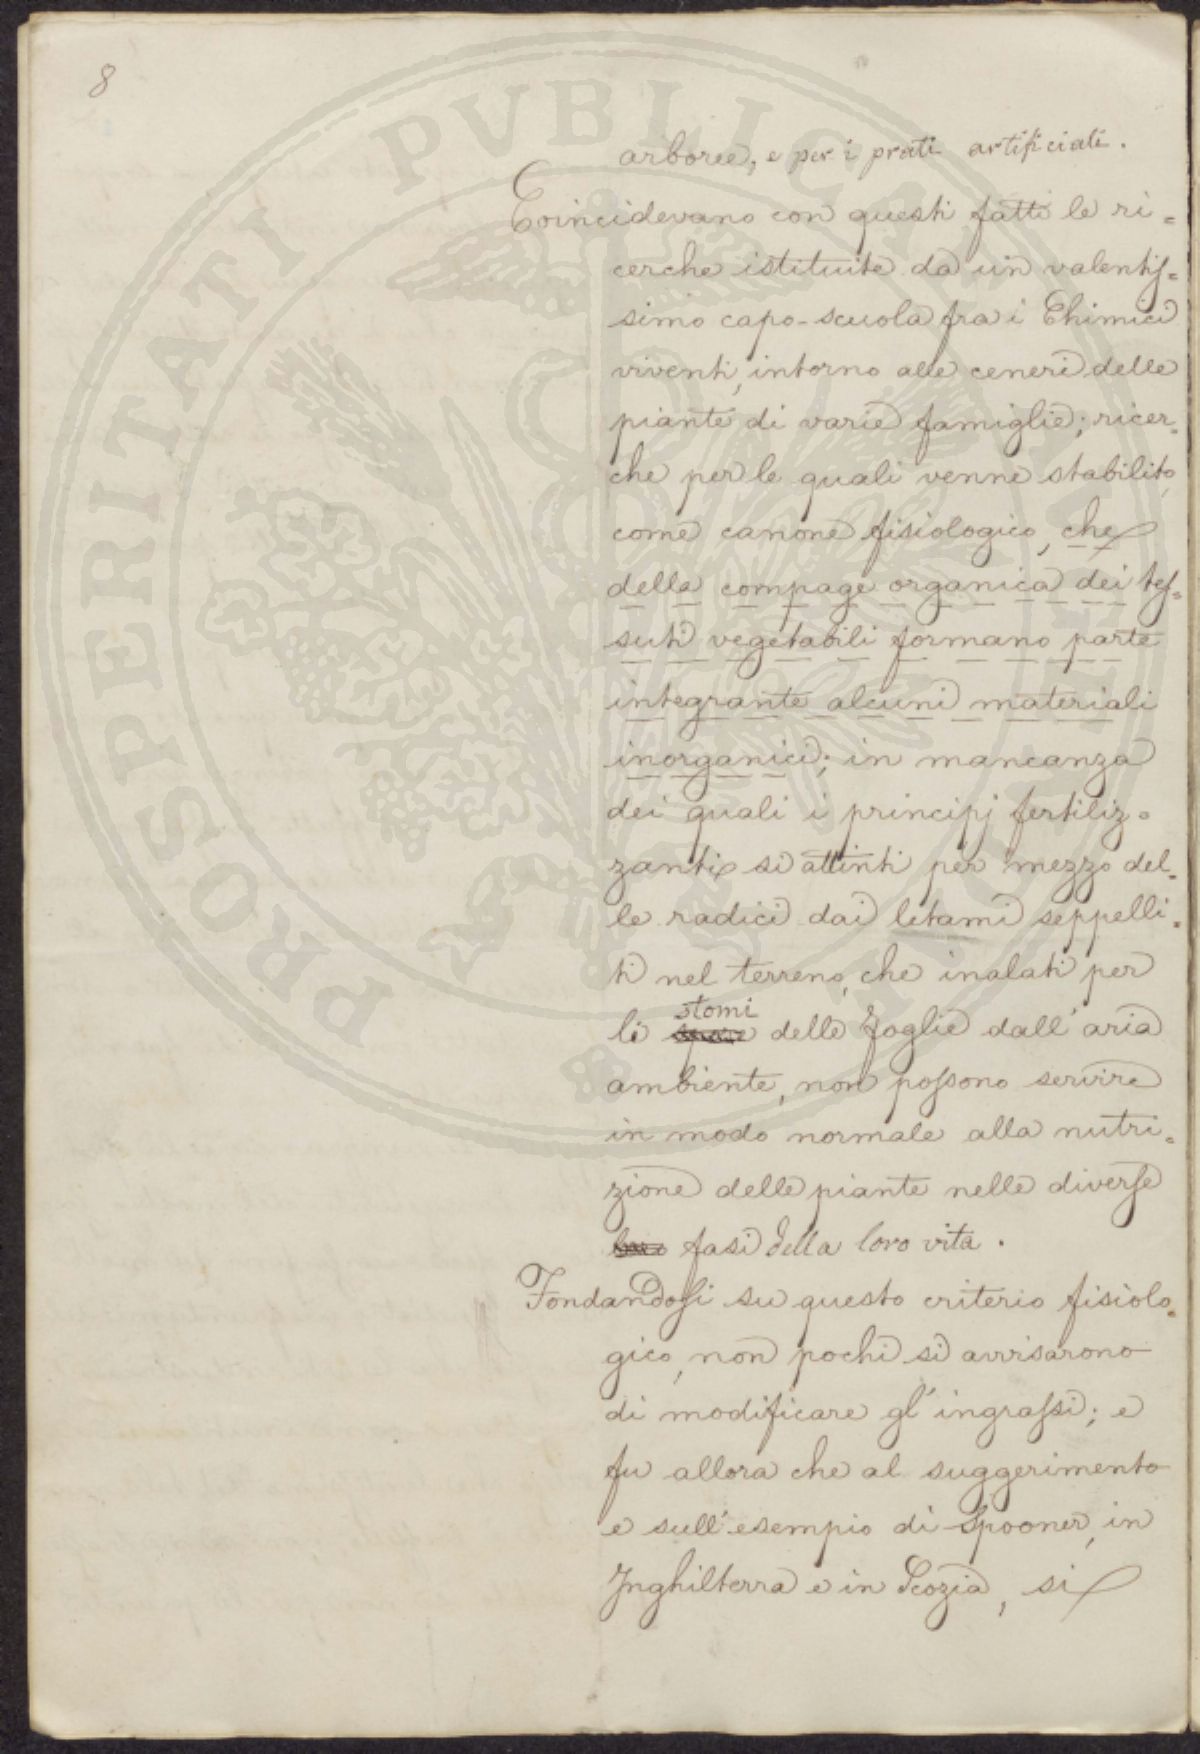 8
arboree, e per i prati artificiali.
Coincidevano con questi fatti le ri=
cerche istituite da un valentis=
simo capo-scuola fra i Chimici
viventi, intorno alle ceneri delle
piante di varie famiglie; ricer=
che per le quali venne stabilito,
come canone fisiologico, che
della compage organica dei tes=
suti vegetabili formano parte
integrante alcuni materiali
inorganici; in mancanza
dei quali i principj fertiliz=
zanti si attinti per mezzo del=
le radici dai letami seppelli=
ti nel terreno, che inalati per
stomi
li delle foglie dall'aria
ambiente, non possono servire
in modo normale alla nutri=
zione delle piante nelle diverse
fasi della loro vita.
Fondandosi su questo criterio fisiolo=
gico, non pochi si avvisarono
di modificare gl'ingrassi; e
fu allora che al suggerimento
e sull'esempio di Spooner, in
Inghilterra e in Scozia, si
PROSPERITATI PVBLICAE